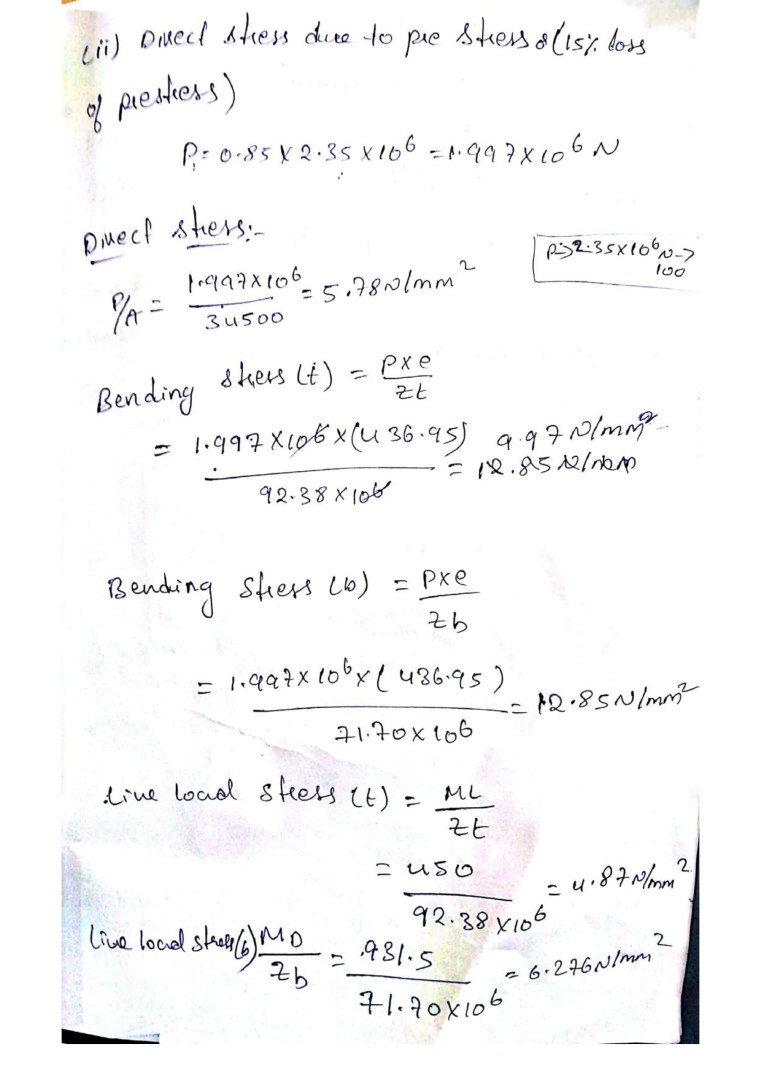 (ii) Direct stress due to pre stress & (15% loss
of prestress)
P1 = 0.85 x 2.35 x 10^6 = 1.997 x 10^6 N
Direct stress:-
P => 2.35 x 10^6 N ->
100
P/A = 1.997 x 10^6 / 34500 = 5.78 N/mm^2
Bending stress (t) = P x e / Zt
= 1.997 x 10^6 x (436.95) / 92.38 x 10^6 = 9.97 N/mm^2
12.85 N/mm
Bending stress (b) = P x e / Zb
= 1.997 x 10^6 x (436.95) / 71.70 x 10^6 = 12.85 N/mm^2
Live load stress (t) = ML / Zt
= 450 / 92.38 x 10^6 = 4.87 N/mm^2
Live load stress (b) MD / Zb = 931.5 / 71.70 x 10^6 = 6.276 N/mm^2